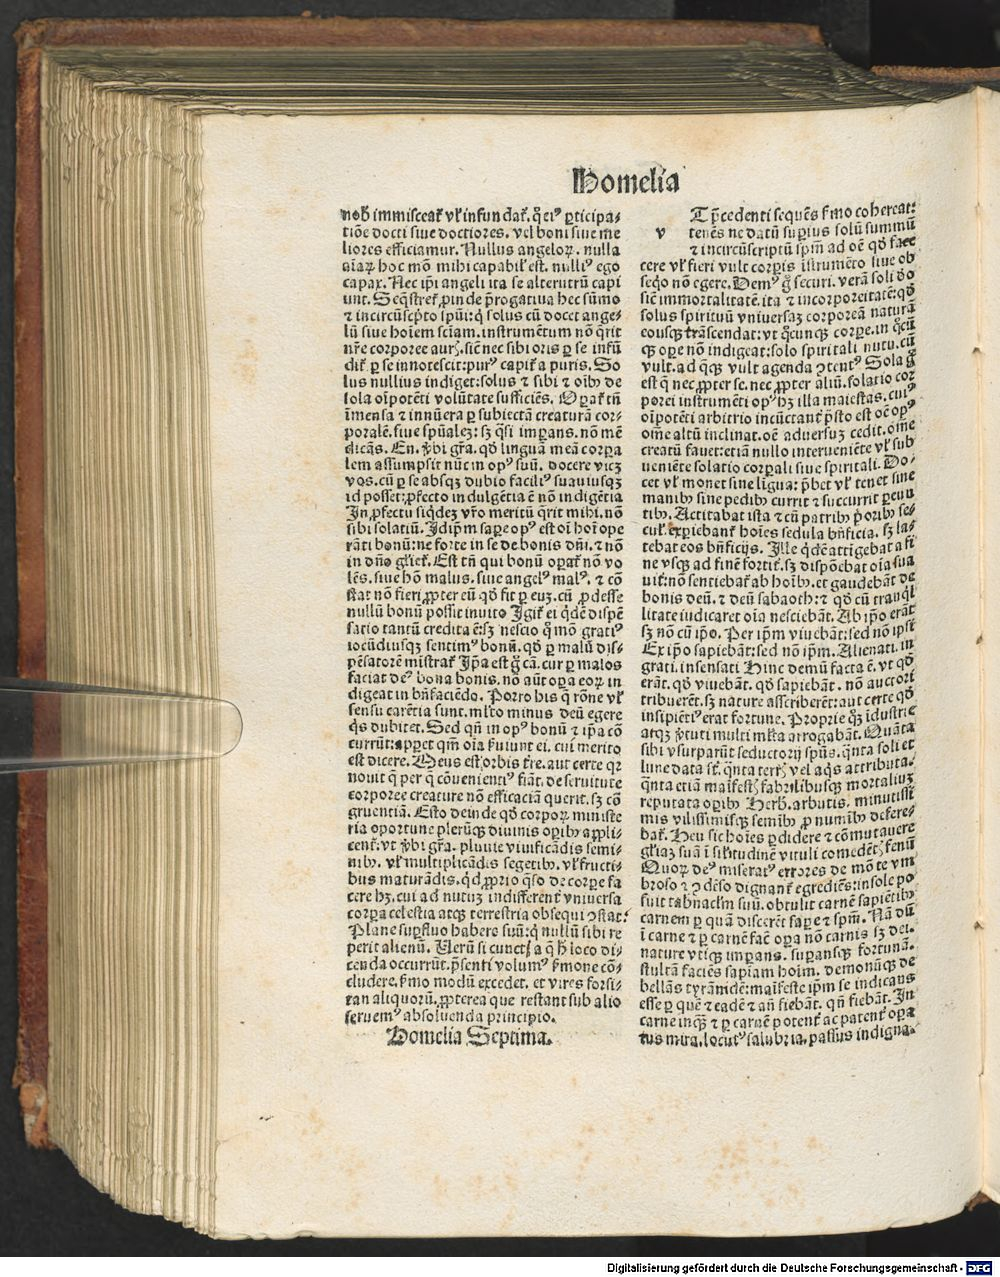 Homelia
nob̄ immisceat̄ vl̄ infundat̄. q̄ eiꝰ ꝑticipa⸗
tiōe docti siue doctiores. vel boni siue me
liores efficiamur. Nullus angeloꝝ. nulla
aīaꝝ hoc mō mihi capabil̄ est. nulliꝰ ego
capax. Nec ip̄i angeli ita se alterutrū capi
unt. Seq̄stret̄ ꝓinde p̄rogatiua hec sūmo
⁊ incircūscp̄to sp̄ui: q̇ solus cū docet ange⸗
lū siue hoīem sciam. instrumētum nō q̄rit
nr̄e corporee aurꝭ. sic̄ nec sibi oris ꝑ se infū
dit̄ ꝑ se innotescit: purꝰ capit̄ a puris. So
lus nullius indiget: solus ⁊ sibi ⁊ oīb̄ de
sola oīpotēti volūtate sufficiēs. Oꝑat̄ tn̄
īmensa ⁊ innūera ꝑ subiectā creaturā cor⸗
poralē. siue sp̄ualeꝫ: sꝫ q̄si imꝑans. nō mē
dicās. En. v̄bi gr̄a. qd̄ linguā meā corꝑa
lem assumpsit nūc in opꝰ suū. docere vicꝫ
vos. cū ꝑ se absqꝫ dubio faciliꝰ suauiusqꝫ
id posset: ꝓfecto indulgētia ē nō indigētia
In ꝓfectu siq̇dez vr̄o meritū q̄rit mihi. nō
sibi solatiū. Id ip̄m sape opꝰ est oī hoī ope
rāti bonū: ne forte in se de bonis dn̄i. ⁊ nō
in dn̄o gl̄iet̄. Est tn̄ qui bonū oꝑat̄ nō vo
lēs. siue hō malus. siue angelꝰ malꝰ. ⁊ cō
stat nō fieri ꝓpter eū qd̄ fit ꝑ euꝫ. cū ꝓdesse
nullū bonū possit inuito Igit̄ ei q̇dē dispē
satio tantū credita ē: sꝫ nescio q̊mō gratiꝰ
iocūdiusqꝫ sentimꝰ bonū. qd̄ ꝑ malū dis⸗
pēsatorē mīstrat̄ Ip̄a est ḡ cā. cur ꝑ malos
faciat deꝰ bona bonis. nō aūt oꝑa eoꝝ in
digeat in bn̄faciēdo. Porro his q̄ rōne vl̄
sensu carētia sunt. ml̄to minus deū egere
q̇s dubitet. Sed qn̄ in opꝰ bonū ⁊ ip̄a cō
currūt: apꝑet qm̄ oīa f̄uiunt ei. cui merito
est dicere. Meus est orbis tr̄e. aut certe qꝛ
nouit q̄ per q̄ cōuenientiꝰ fiāt. de seruitute
corporee creature nō efficaciā querit. sꝫ cō
gruentiā. Esto deinde qd̄ corpoꝝ ministe
ria oportune pleruqꝫ diuinis oꝑib̄ appli⸗
cent̄. vt v̄bi gr̄a. pluuie viuificādis semi⸗
nib̄. vl̄ multiplicādis segetib̄. vl̄ fructi⸗
bus maturādis. q̇d ꝓprio q̄so de corꝑe fa
cere hꝫ. cui ad nutuꝫ indifferent̄ vniuersa
corꝑa celestia atqꝫ terrestria obsequi ꝯstat:
Plane suꝑfluo habere suū: q̇ nullū sibi re
perit alienū. Verū si cuncta q̄ h̄ loco di⸗
cenda occurrūt. p̄senti volumꝰ f̄mone cō⸗
cludere. f̄mo modū excedet. et vires forsi⸗
tan aliquoꝝ. ꝓpterea que restant sub alio
seruemꝰ absoluenda principio.
Homelia Septima.
v
T p̄cedenti sequēs f̄mo cohereat:
tenēs ne datū suꝑius solū summū
⁊ incircūscriptū sp̄m ad oē qd̄ face
cere vl̄ fieri vult corꝑis īstrumēto siue ob
seq̇o nō egere. Demꝰ ḡ securi. verā soli d̄o
sic̄ immortalitatē. ita ⁊ incorporeitatē: qd̄
solus spirituū vniuersaꝫ corporeā naturā
eousqꝫ trāscendat: vt q̊cunqꝫ corꝑe. in q̊cū
qꝫ oꝑe nō indigeat: solo spiritali nutu. cū
vult. ad q̊dqꝫ vult agenda ꝯtentꝰ Sola ḡ
est q̄ nec ꝓpter se. nec ꝓpter aliū. solatio cor
porei instrumēti opꝰ hꝫ illa maiestas. cuiꝰ
oīpotēti arbitrio incūctant̄ p̄sto est oē opꝰ
om̄e altū inclinat. oē aduersuꝫ cedit. om̄e
creatū fauet: etiā nullo interueniēte vl̄ sub
ueniēte solatio corꝑali siue spiritali. Do⸗
cet vl̄ monet sine līgua: p̄bet vl̄ tenet sine
manib̄ sine pedib̄ currit ⁊ succurrit ꝑeun
tib̄. Actitabat ista ⁊ cū patrib̄ p̄orib̄ se⸗
cul̄. exꝑiebant̄ hoīes sedula bn̄ficia. sꝫ la⸗
tebat eos bn̄ficꝰ. Ille q̇dē attigebat a fi
ne vsqꝫ ad finē fortit̄. sꝫ dispōebat oīa sua
uit̄: nō sentiebat̄ ab hoīb̄. et gaudebāt de
bonis deū. ⁊ deū sabaoth: ⁊ qd̄ cū tranq̇l
litate iudicaret oīa nesciebāt. Ab ip̄o erāt
sꝫ nō cū ip̄o. Per ip̄m viuebāt: sed nō ip̄i
Ex ip̄o sapiebāt: sed nō ip̄m. Alienati. in
grati. insensati Hinc demū facta ē. vt qd̄
erāt. qd̄ viuebāt. qd̄ sapiebāt. nō auctori
tribuerēt. sꝫ nature asscriberēt: aut certe qd̄
insipiētiꝰ erat fortune. Proprie q̊ꝫ īdustrie
atqꝫ v̄tuti multi ml̄ta arrogabāt. Quāta
sibi vsurparūt seductorij sp̄us. q̄nta soli et
lune data sūt. q̄nta terrꝭ vel aq̇s attributa.
q̄nta etiā manifestꝭ fabrilibusqꝫ mortaliuꝫ
reputata oꝑib̄ Herb̄. arbutis. minutissi
mis vilissimisqꝫ semīb̄ ꝓ numīb̄ defere⸗
bat̄. Heu sic hoīes ꝑdidere ⁊ cōmutauere
gl̄iaꝫ suā ī sil̄itudinē vituli comedētꝭ fenū
Quoꝝ deꝰ miseratꝰ errores de mōte vm
broso ⁊ ꝯdēso dignant̄ egrediēs: in sole po
suit tabnacl̄m suū. obtulit carnē sapiētib̄
carnem ꝑ quā discerēt sape ⁊ sp̄m. Nā dū
ī carne ⁊ ꝑ carnē fac̄ oꝑa nō carnis sꝫ dei.
nature vtiqꝫ imꝑans. suꝑansqꝫ fortunā.
stultā faciēs sapiam hoīm. demonūqꝫ de
bellās tyrāmidē: manifeste ip̄m se indicans
esse ꝑ quē ⁊ eadē ⁊ an̄ fiebāt. qn̄ fiebāt. In
carne inqꝫ ⁊ ꝑ carnē potent̄ ac patent̄ oꝑa
tus mira. locutꝰ salubria. passus indigna⸗
Digitalisierung gefördert durch die Deutsche Forschungsgemeinschaft - DFG